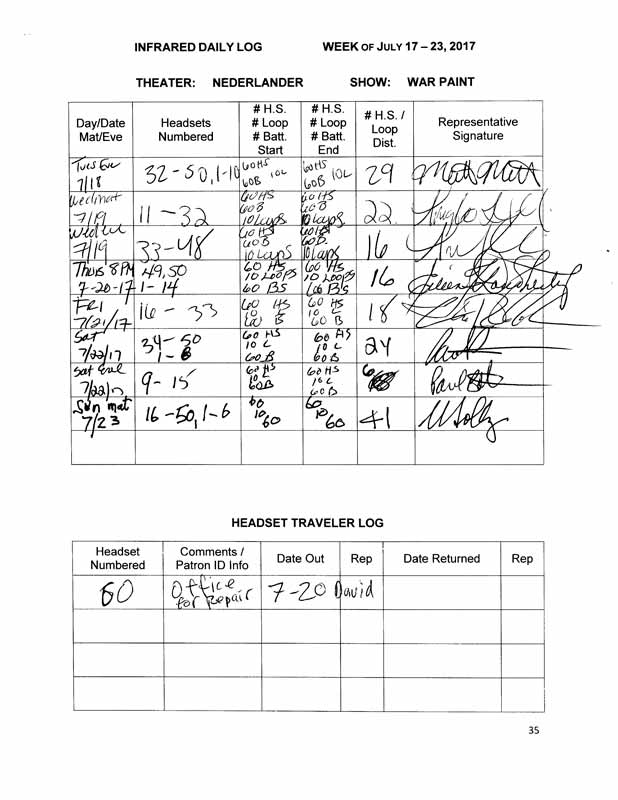 INFRARED DAILY LOG WEEK OF JULY 17 – 23, 2017
THEATER: NEDERLANDER SHOW: WAR PAINT
Day/Date Mat/Eve Headsets Numbered # H.S. # Loop # Batt. Start # H.S. # Loop # Batt. End # H.S. / Loop Dist. Representative Signature
Tues Eve 7/18 32-50, 1-10 60HS 10L 60B 60HS 60B 10L 29
Wed mat 7/19 11-32 60HS 60B 10Loops 60HS 60B 10Loops 22
Wed Eve 7/19 33-48 60HS 60B 10Loops 60HS 60B 10Loops 16
Thurs 8PM 7-20-17 49,50 1-14 60 HS 10 LOOPS 60 BS 60 HS 10 LOOPS 60 BS 16 Eileen
FRI 7/21/17 16-33 60 HS 10 L 60 B 60 HS 10 L 60 B 18
Sat 7/22/17 34-50 1-8 60 HS 10 L 60 B 60 HS 10 L 60 B 24
Sat Eve 7/22/17 9-15 60 HS 10 L 60B 60 HS 10 L 60B 6 Paul
Sun mat 7/23 16-50, 1-6 60 10 60 60 10 60 41
HEADSET TRAVELER LOG
Headset Numbered Comments / Patron ID Info Date Out Rep Date Returned Rep
60 Office for Repair 7-20 David
35